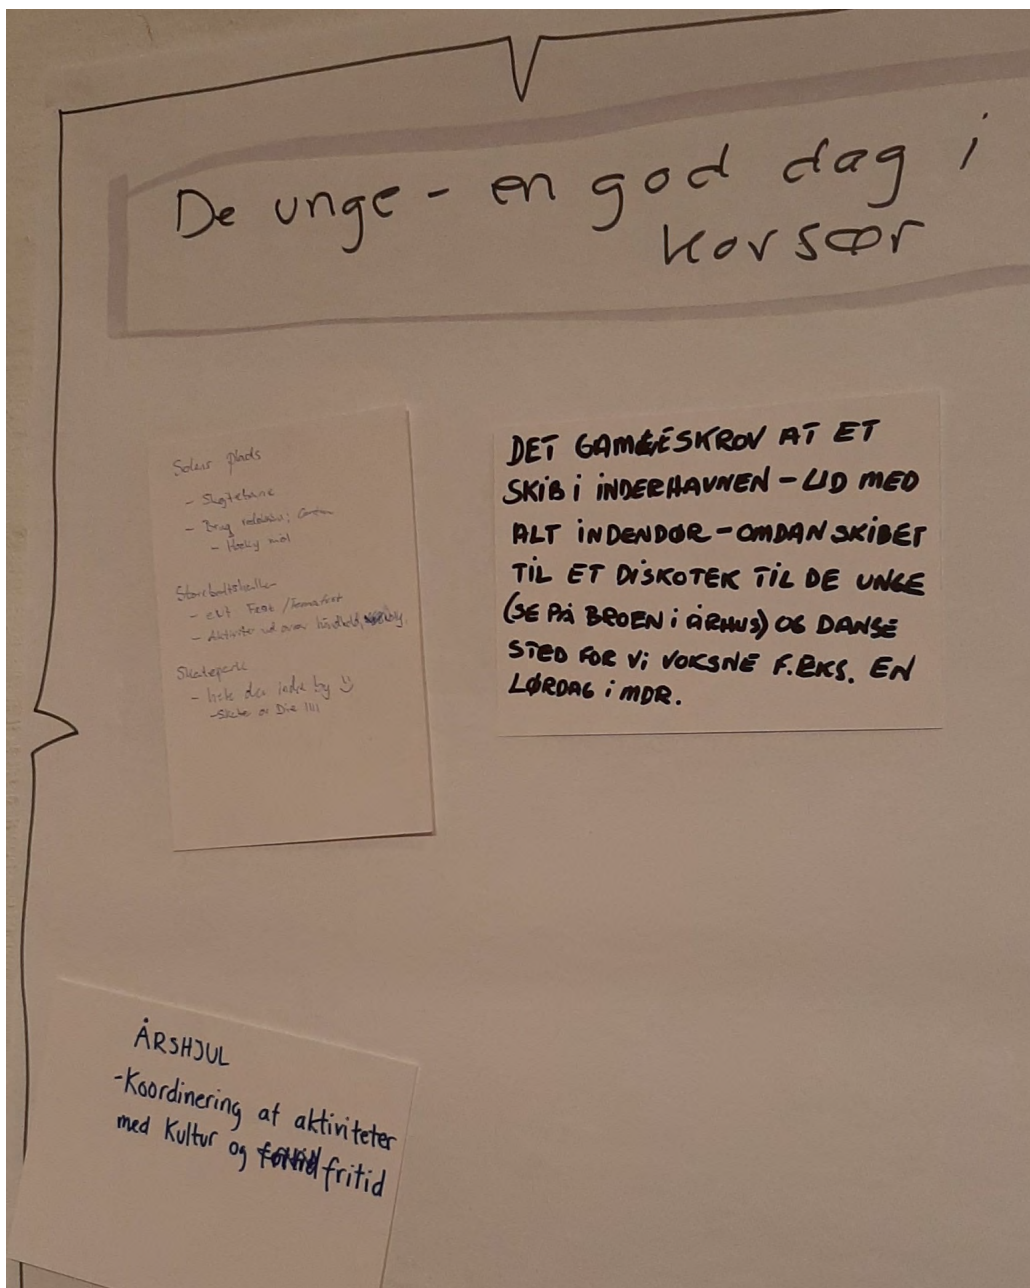 De unge - en god dag i
Korsør
Solens Plads
- Skøjtebane
- Brug
- Hockey mål
Storebæltshallen
- evt Fest /Temafest
- Aktiviter ud over håndbold,
Skatepark
- den indre by
- Skate or Die !!!!
DET GAMLE SKROV AT ET
SKIB i INDERHAVNEN - UD MED
ALT INDENDØR - OMDAN SKIBET
TIL ET DISKOTEK TIL DE UNGE
(SE PÅ BROEN i ÅRHUS) OG DANSE
STED FOR Vi VOKSNE F.EKS. EN
LØRDAG i MDR.
ÅRSHJUL
-Koordinering af aktiviteter
med Kultur og fritid